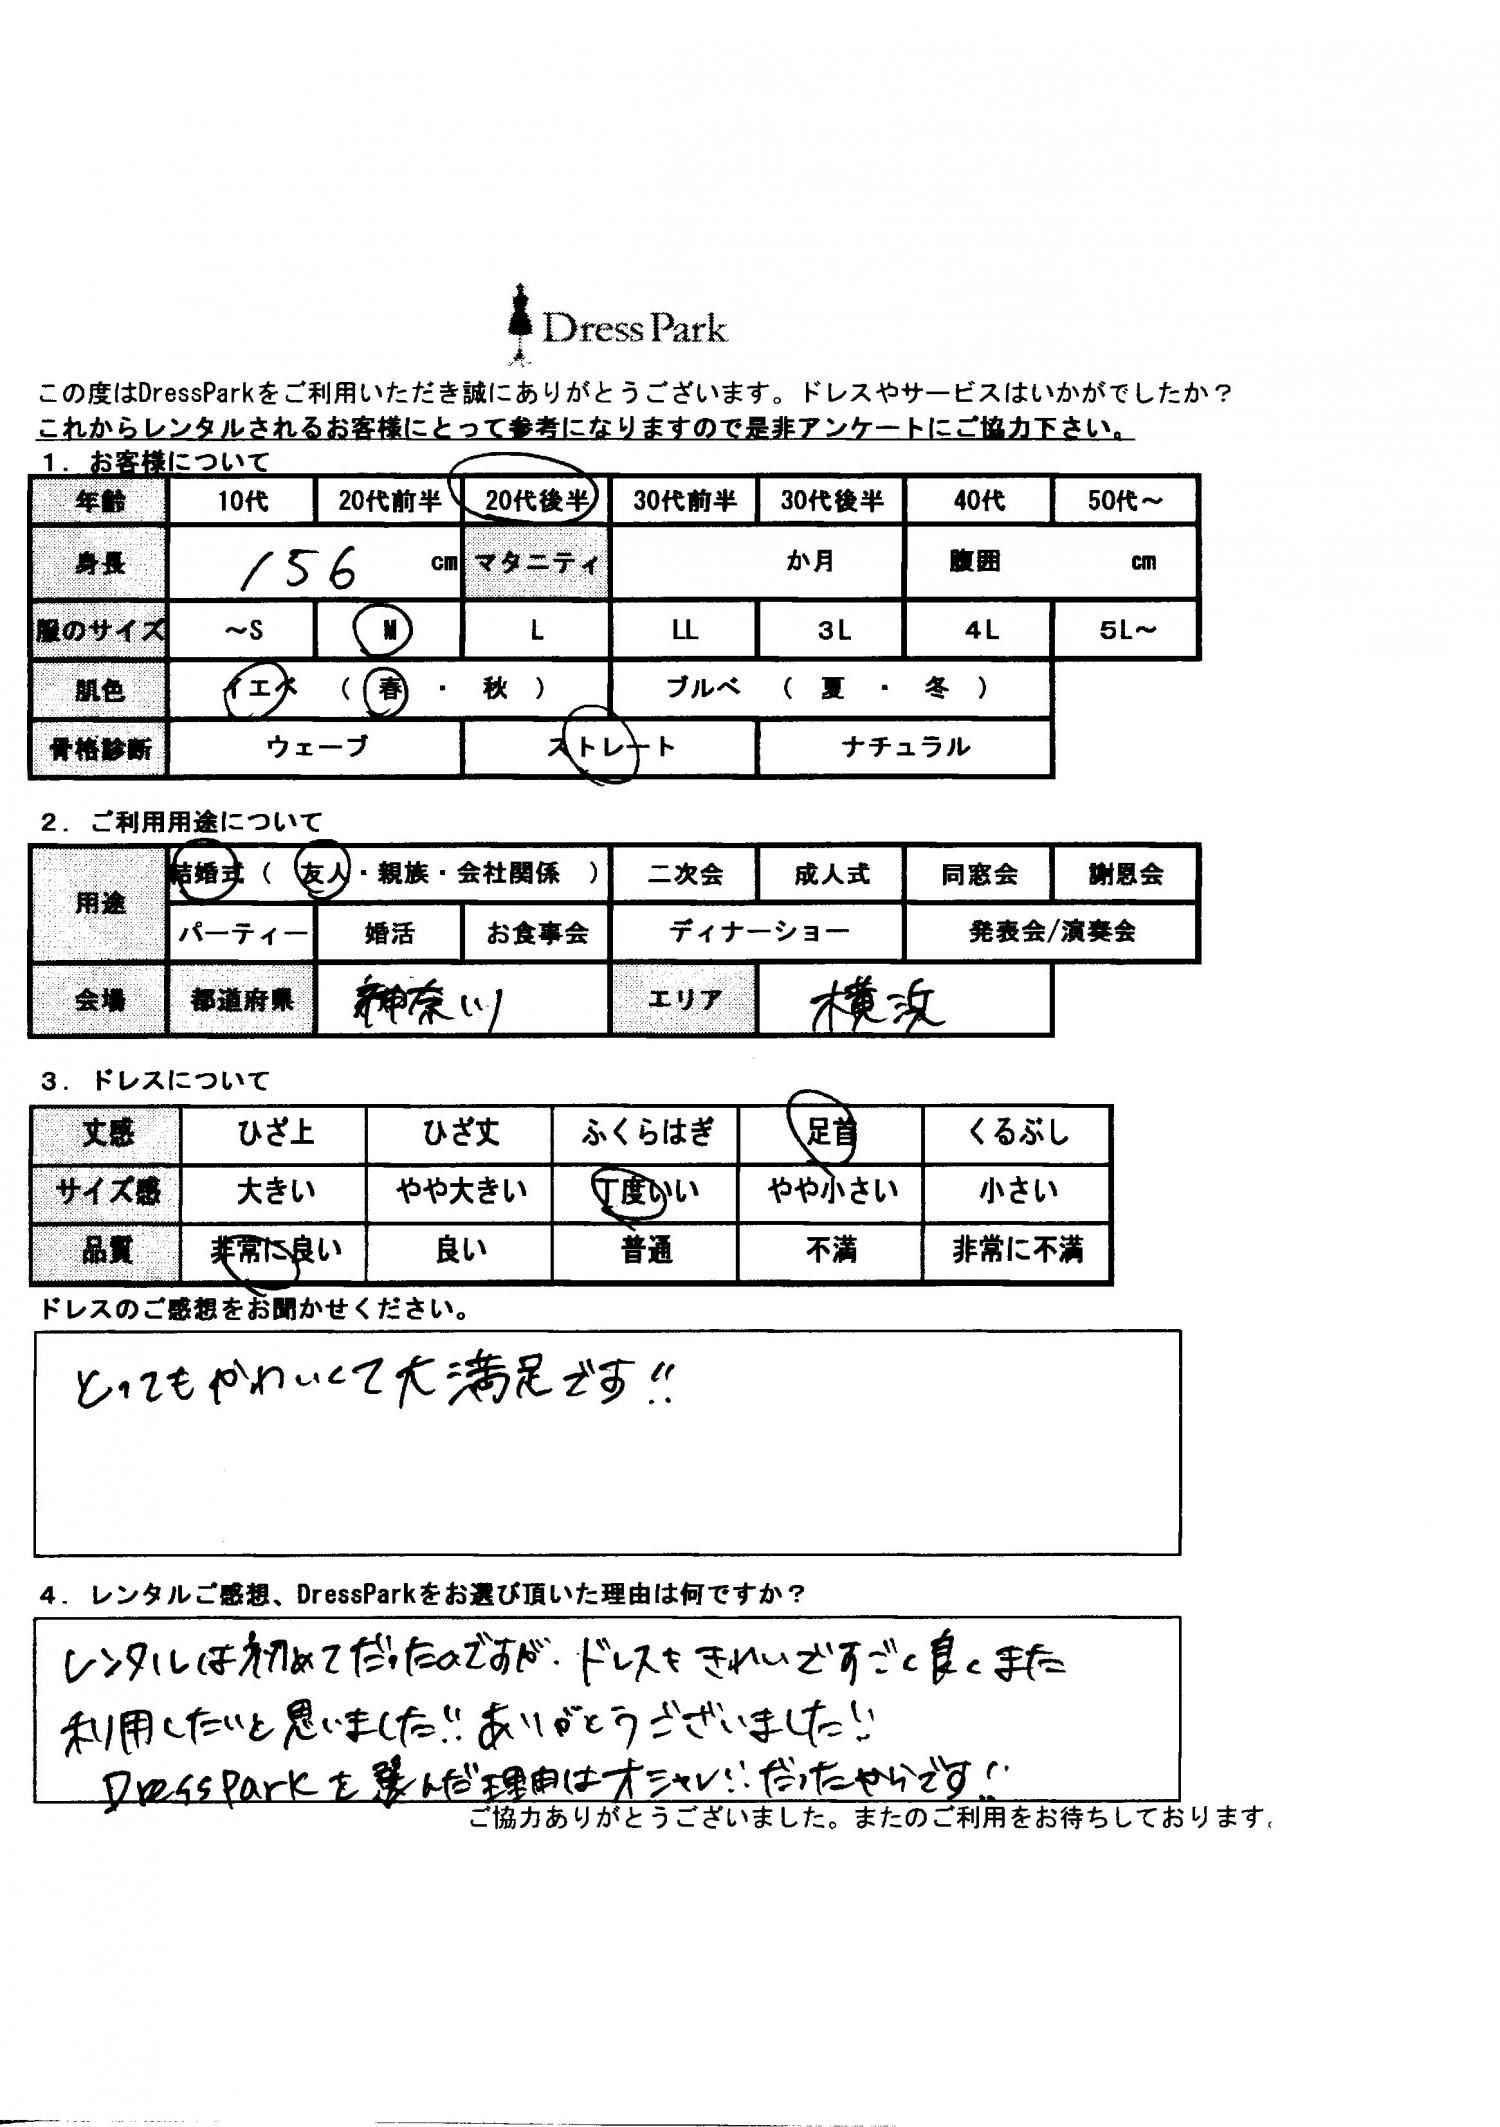 Dress Park
この度はDressParkをご利用いただき誠にありがとうございます。ドレスやサービスはいかがでしたか？
これからレンタルされるお客様にとって参考になりますので是非アンケートにご協力下さい。
1．お客様について
年齢 10代 20代前半 20代後半 30代前半 30代後半 40代 50代～
身長 156 cm マタニティ か月 腹囲 cm
服のサイズ ～S M L LL 3L 4L 5L～
肌色 イエベ （ 春 ・ 秋 ） ブルベ （ 夏 ・ 冬 ）
骨格診断 ウェーブ ストレート ナチュラル
2．ご利用用途について
用途 結婚式（ 友人・親族・会社関係 ） 二次会 成人式 同窓会 謝恩会
パーティー 婚活 お食事会 ディナーショー 発表会/演奏会
会場 都道府県 神奈川 エリア 横浜
3．ドレスについて
丈感 ひざ上 ひざ丈 ふくらはぎ 足首 くるぶし
サイズ感 大きい やや大きい 丁度いい やや小さい 小さい
品質 非常に良い 良い 普通 不満 非常に不満
ドレスのご感想をお聞かせください。
とってもかわいくて大満足です!!
4．レンタルご感想、DressParkをお選び頂いた理由は何ですか？
レンタルは初めてだったのですが、ドレスもきれいですごく良くまた
利用したいと思いました!! ありがとうございました!!
DressParkを選んだ理由はオシャレ!!だったからです!!
ご協力ありがとうございました。またのご利用をお待ちしております。